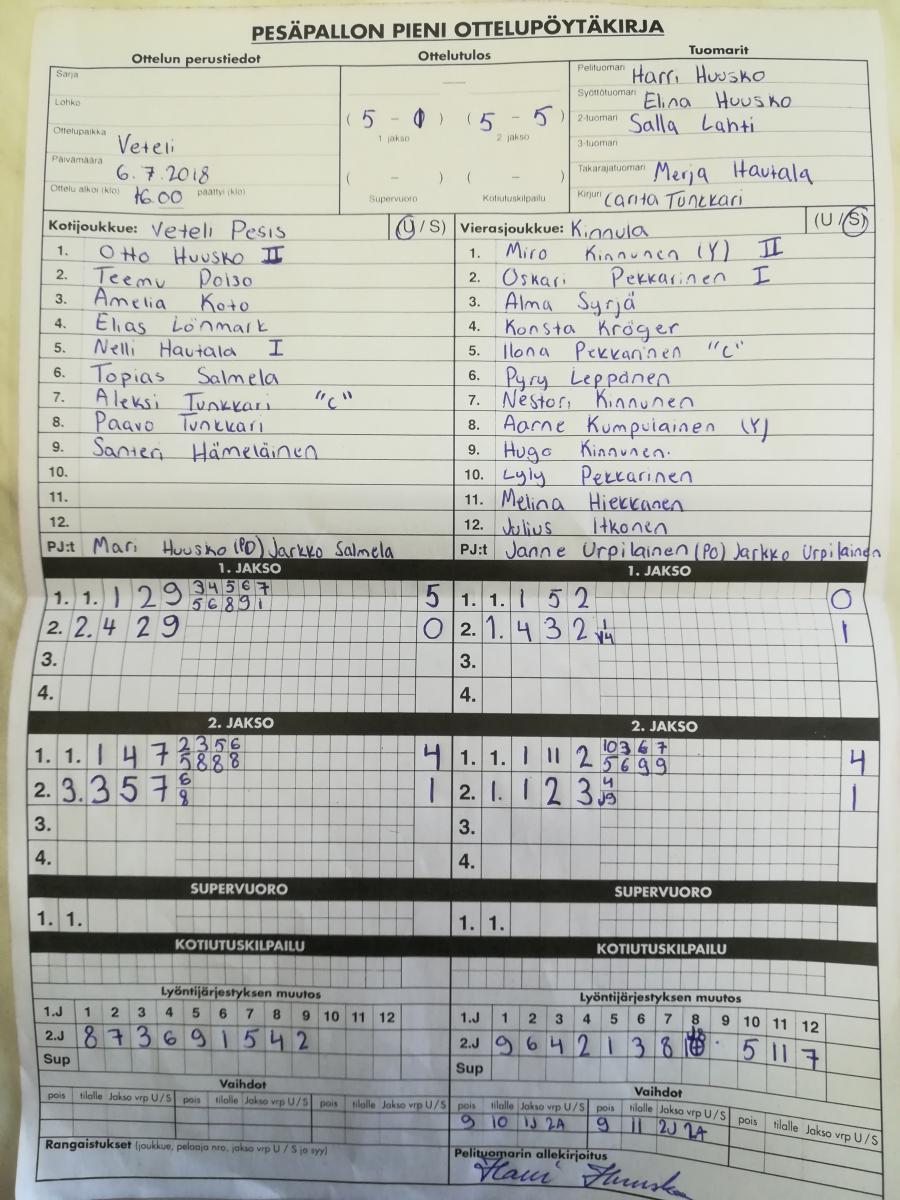 PESÄPALLON PIENI OTTELUPÖYTÄKIRJA
Ottelun perustiedot
Ottelutulos
Tuomarit
Sarja
Lohko
Ottelupaikka Veteli
Päivämäärä 6.7.2018
Ottelu alkoi (klo) 16.00 päättyi (klo)
( 5 - 0 ) ( 5 - 5 )
1 jakso 2 jakso
( - ) ( - )
Supervuoro Kotiutuskilpailu
Pelituomari Harri Huusko
Syöttötuomari Elina Huusko
2-tuomari Salla Lahti
3-tuomari
Takarajatuomari Merja Hautala
Kirjuri Carita Tunkkari
Kotijoukkue: Veteli Pesis (U / S)
1. Otto Huusko II
2. Teemu Polso
3. Amelia Koto
4. Elias Lönmark
5. Nelli Hautala I
6. Topias Salmela
7. Aleksi Tunkkari "C"
8. Paavo Tunkkari
9. Santeri Hämeläinen
10.
11.
12.
PJ:t Mari Huusko (PO) Jarkko Salmela
Vierasjoukkue: Kinnula (U / S)
1. Miro Kinnunen (Y) II
2. Oskari Pekkarinen I
3. Alma Syrjä
4. Konsta Kröger
5. Ilona Pekkarinen "C"
6. Pyry Leppänen
7. Nestori Kinnunen
8. Aarne Kumpulainen (Y)
9. Hugo Kinnunen.
10. Lyly Pekkarinen
11. Melina Hiekkanen
12. Julius Itkonen
PJ:t Janne Urpilainen (PO) Jarkko Urpilainen
1. JAKSO
1. 1. 1 2 9 3 4 5 6 7 5
5 6 8 9 1
2. 2. 4 2 9 0
3.
4.
1. JAKSO
1. 1. 1 5 2 0
2. 1. 4 3 2 1
3.
4.
2. JAKSO
1. 1. 1 4 7 2 3 5 6 4
5 8 8 8
2. 3. 3 5 7 6 1
8
3.
4.
2. JAKSO
1. 1. 1 11 2 10 3 6 7 4
5 6 9 9
2. 1. 1 2 3 4 1
3.
4.
SUPERVUORO
1. 1.
SUPERVUORO
1. 1.
KOTIUTUSKILPAILU
KOTIUTUSKILPAILU
Lyöntijärjestyksen muutos
1.J 1 2 3 4 5 6 7 8 9 10 11 12
2.J 8 7 3 6 9 1 5 4 2
Sup
Lyöntijärjestyksen muutos
1.J 1 2 3 4 5 6 7 8 9 10 11 12
2.J 9 6 4 2 1 3 8 5 11 7
Sup
Vaihdot
pois tilalle Jakso vrp U/S pois tilalle Jakso vrp U/S pois tilalle Jakso vrp U/S
Vaihdot
pois tilalle Jakso vrp U/S pois tilalle Jakso vrp U/S pois tilalle Jakso vrp U/S
9 10 1J 2A 9 11 2J 2A
Rangaistukset (joukkue, pelaaja nro, jakso vrp U / S ja syy)
Pelituomarin allekirjoitus
Harri Huusko